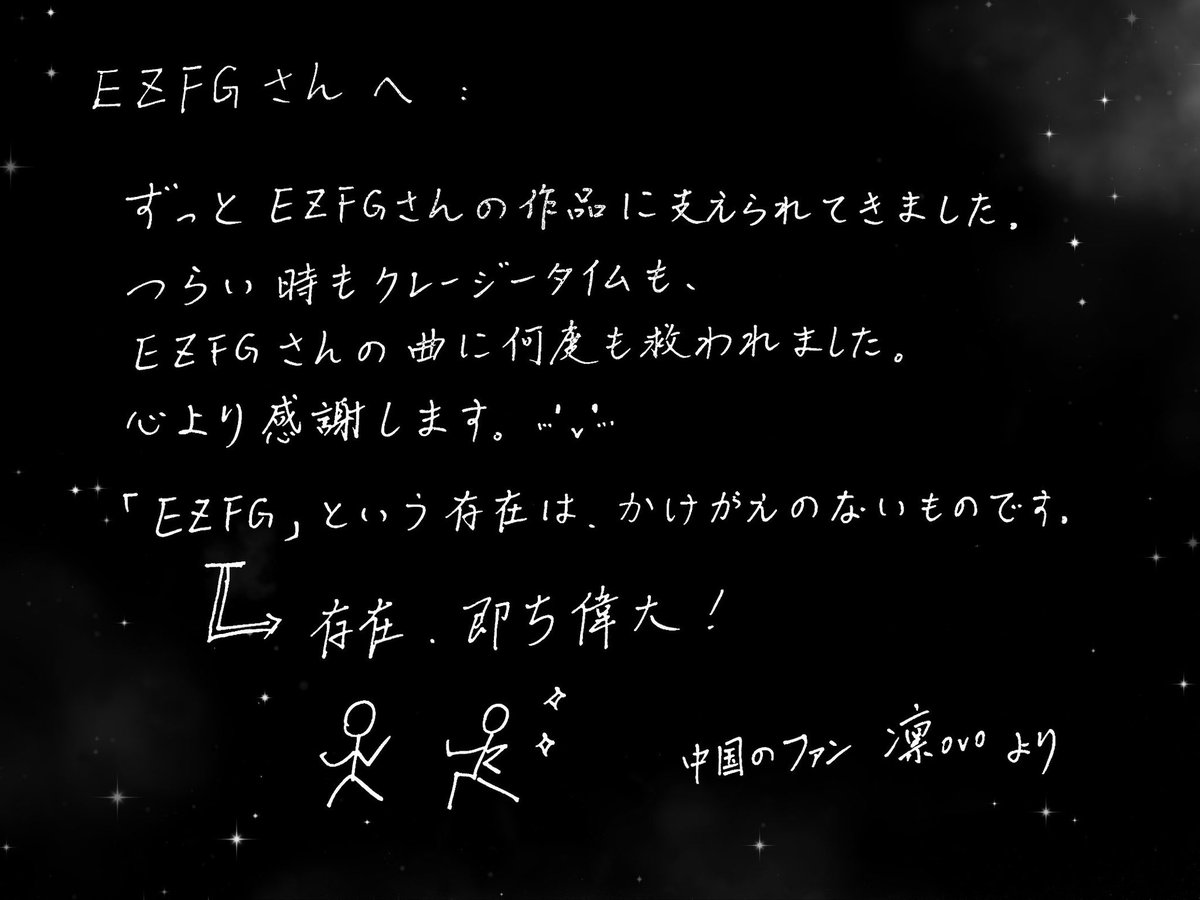 EZFGさんへ:
ずっとEZFGさんの作品に支えられてきました.
つらい時もクレージータイムも、
EZFGさんの曲に何度も救われました。
心より感謝します。
「EZFG」という存在は、かけがえのないものです.
存在、即ち偉大!
中国のファン 凛ovoより